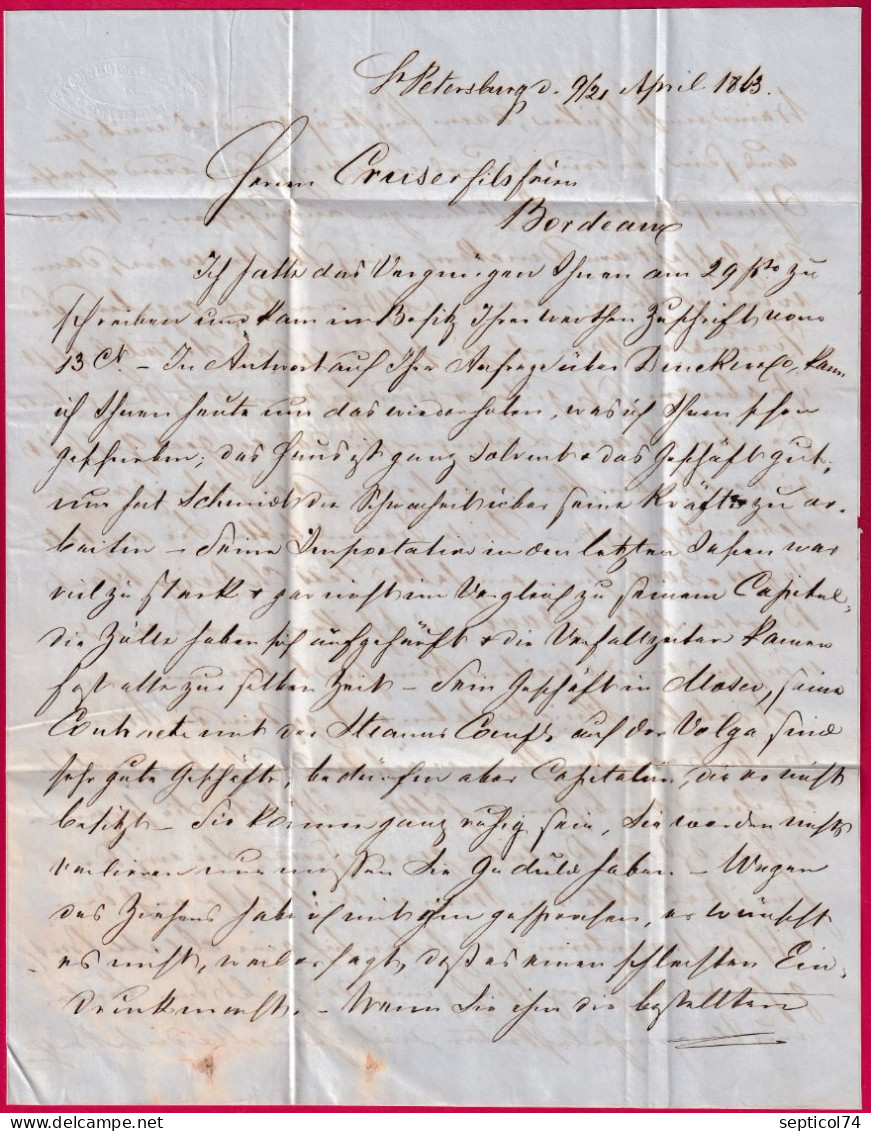 St Petersburg d. 9/21 April 1863.
Herren Cruse & fils frères
Bordeaux
Ich hatte das Vergnügen Ihnen am 29 pto zu
schreiben und kam im Besitz Ihrer werthen Zuschrift vom
13 Ct. – In Antwort auf Ihre Anfrage über kann
ich Ihnen heute nur das wiederholen, was ich Ihnen schon
geschrieben; das Haus ist ganz solvent & das Geschäft gut;
nur hat Schmidt die Schwachheit über seine Kräfte zu ar-
beiten – Seine Importation in den letzten Jahren war
viel zu stark & gar nicht im Vergleich zu seinem Capital,
die Zölle haben sich aufgehäuft & die Verfallzeiten kamen
fast alle zur selben Zeit – Sein Geschäft in Moscou, seine
Contracte mit der auf der Volga sind
sehr gute Geschäfte, bedürfen aber Capitalien, die er nicht
besitzt – Sie können ganz ruhig sein, Sie werden nichts
verlieren nur müssen Sie Geduld haben – Wegen
des Ziehens habe ich mit ihm gesprochen, er wünscht
es nicht, weil er sagt, daß es einen schlechten Ein-
druck macht. – Wenn Sie ihm die bestellten
septicol74